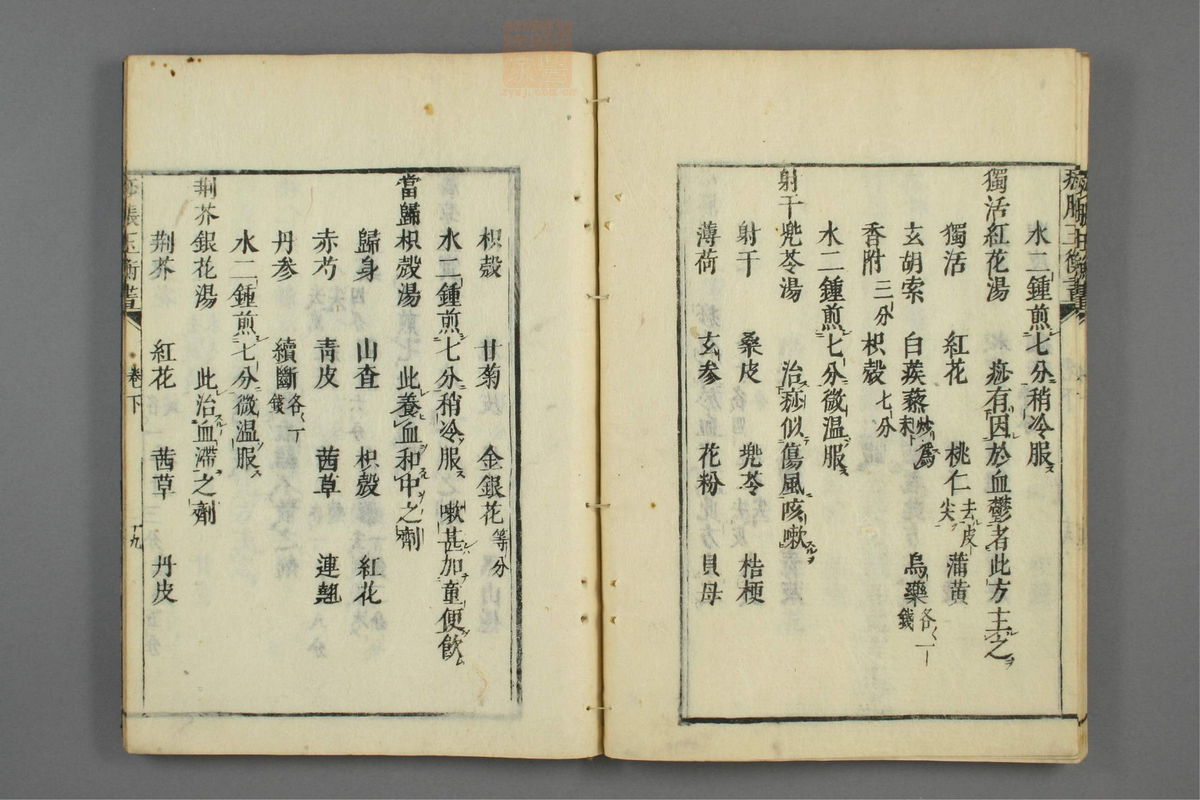 痧脹玉衡書
水二鍾煎七分稍冷服
獨活紅花湯　痧有因於血鬱者此方主之
獨活　紅花　桃仁去皮尖　蒲黃
玄胡索　白蒺藜炒爲末　烏藥各一錢
香附三分　枳殼七分
水二鍾煎七分微温服
射干兜苓湯　治痧似傷風咳嗽
射干　桑皮　兜苓　桔梗
薄荷　玄参　花粉　貝母
枳殼　甘菊　金銀花等分
水二鍾煎七分稍冷服　嗽甚加童便飲
當歸枳殼湯　此養血和中之劑
歸身　山查　枳殼　紅花
赤芍　青皮　茜草　連翹
丹参　續斷各一錢
水二鍾煎七分微温服
荆芥銀花湯　此治血滯之劑
荆芥　紅花　茜草　丹皮
痧脹玉衡書　卷下　十九